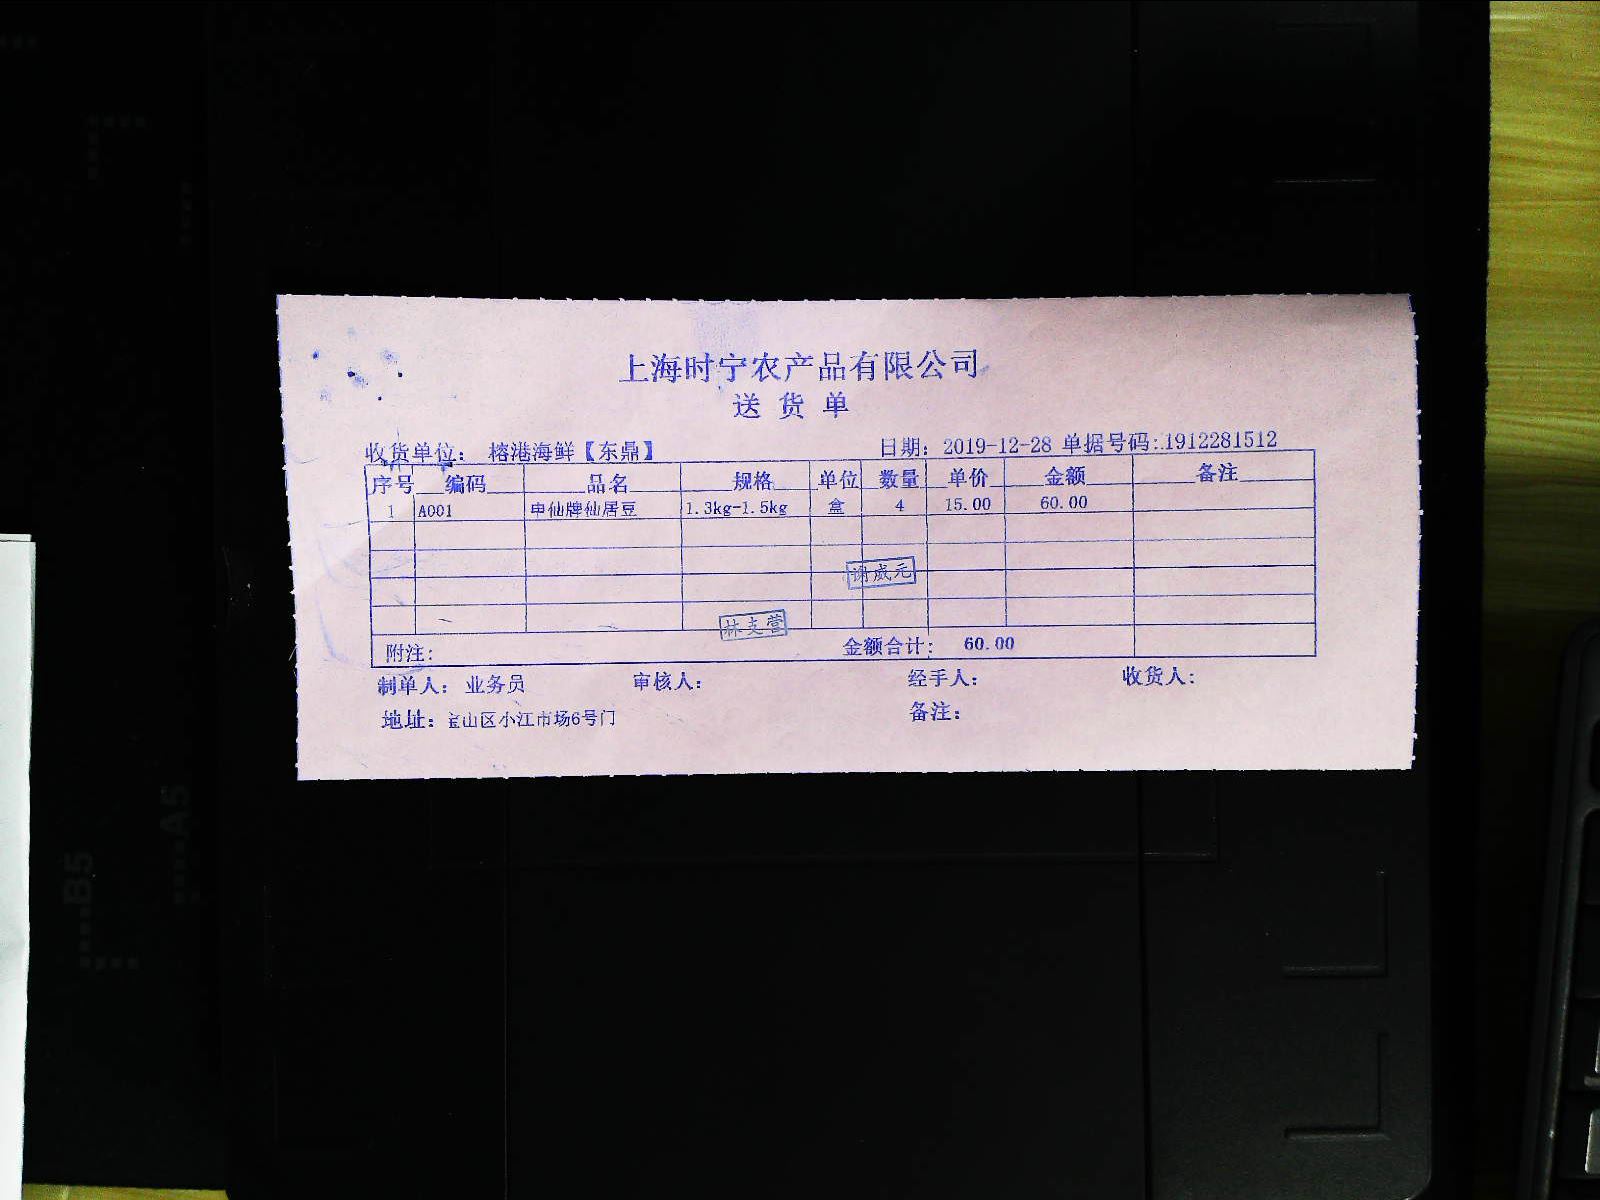 上海时宁农产品有限公司
送货单
收货单位： 榕港海鲜【东鼎】 日期：2019-12-28 单据号码：1912281512
序号 编码 品名 规格 单位 数量 单价 金额 备注
1 A001 申仙牌仙居豆 1.3kg-1.5kg 盒 4 15.00 60.00
谢威元
林支营
附注： 金额合计： 60.00
制单人： 业务员 审核人： 经手人： 收货人：
地址：宝山区小江市场6号门 备注：
A5
B5